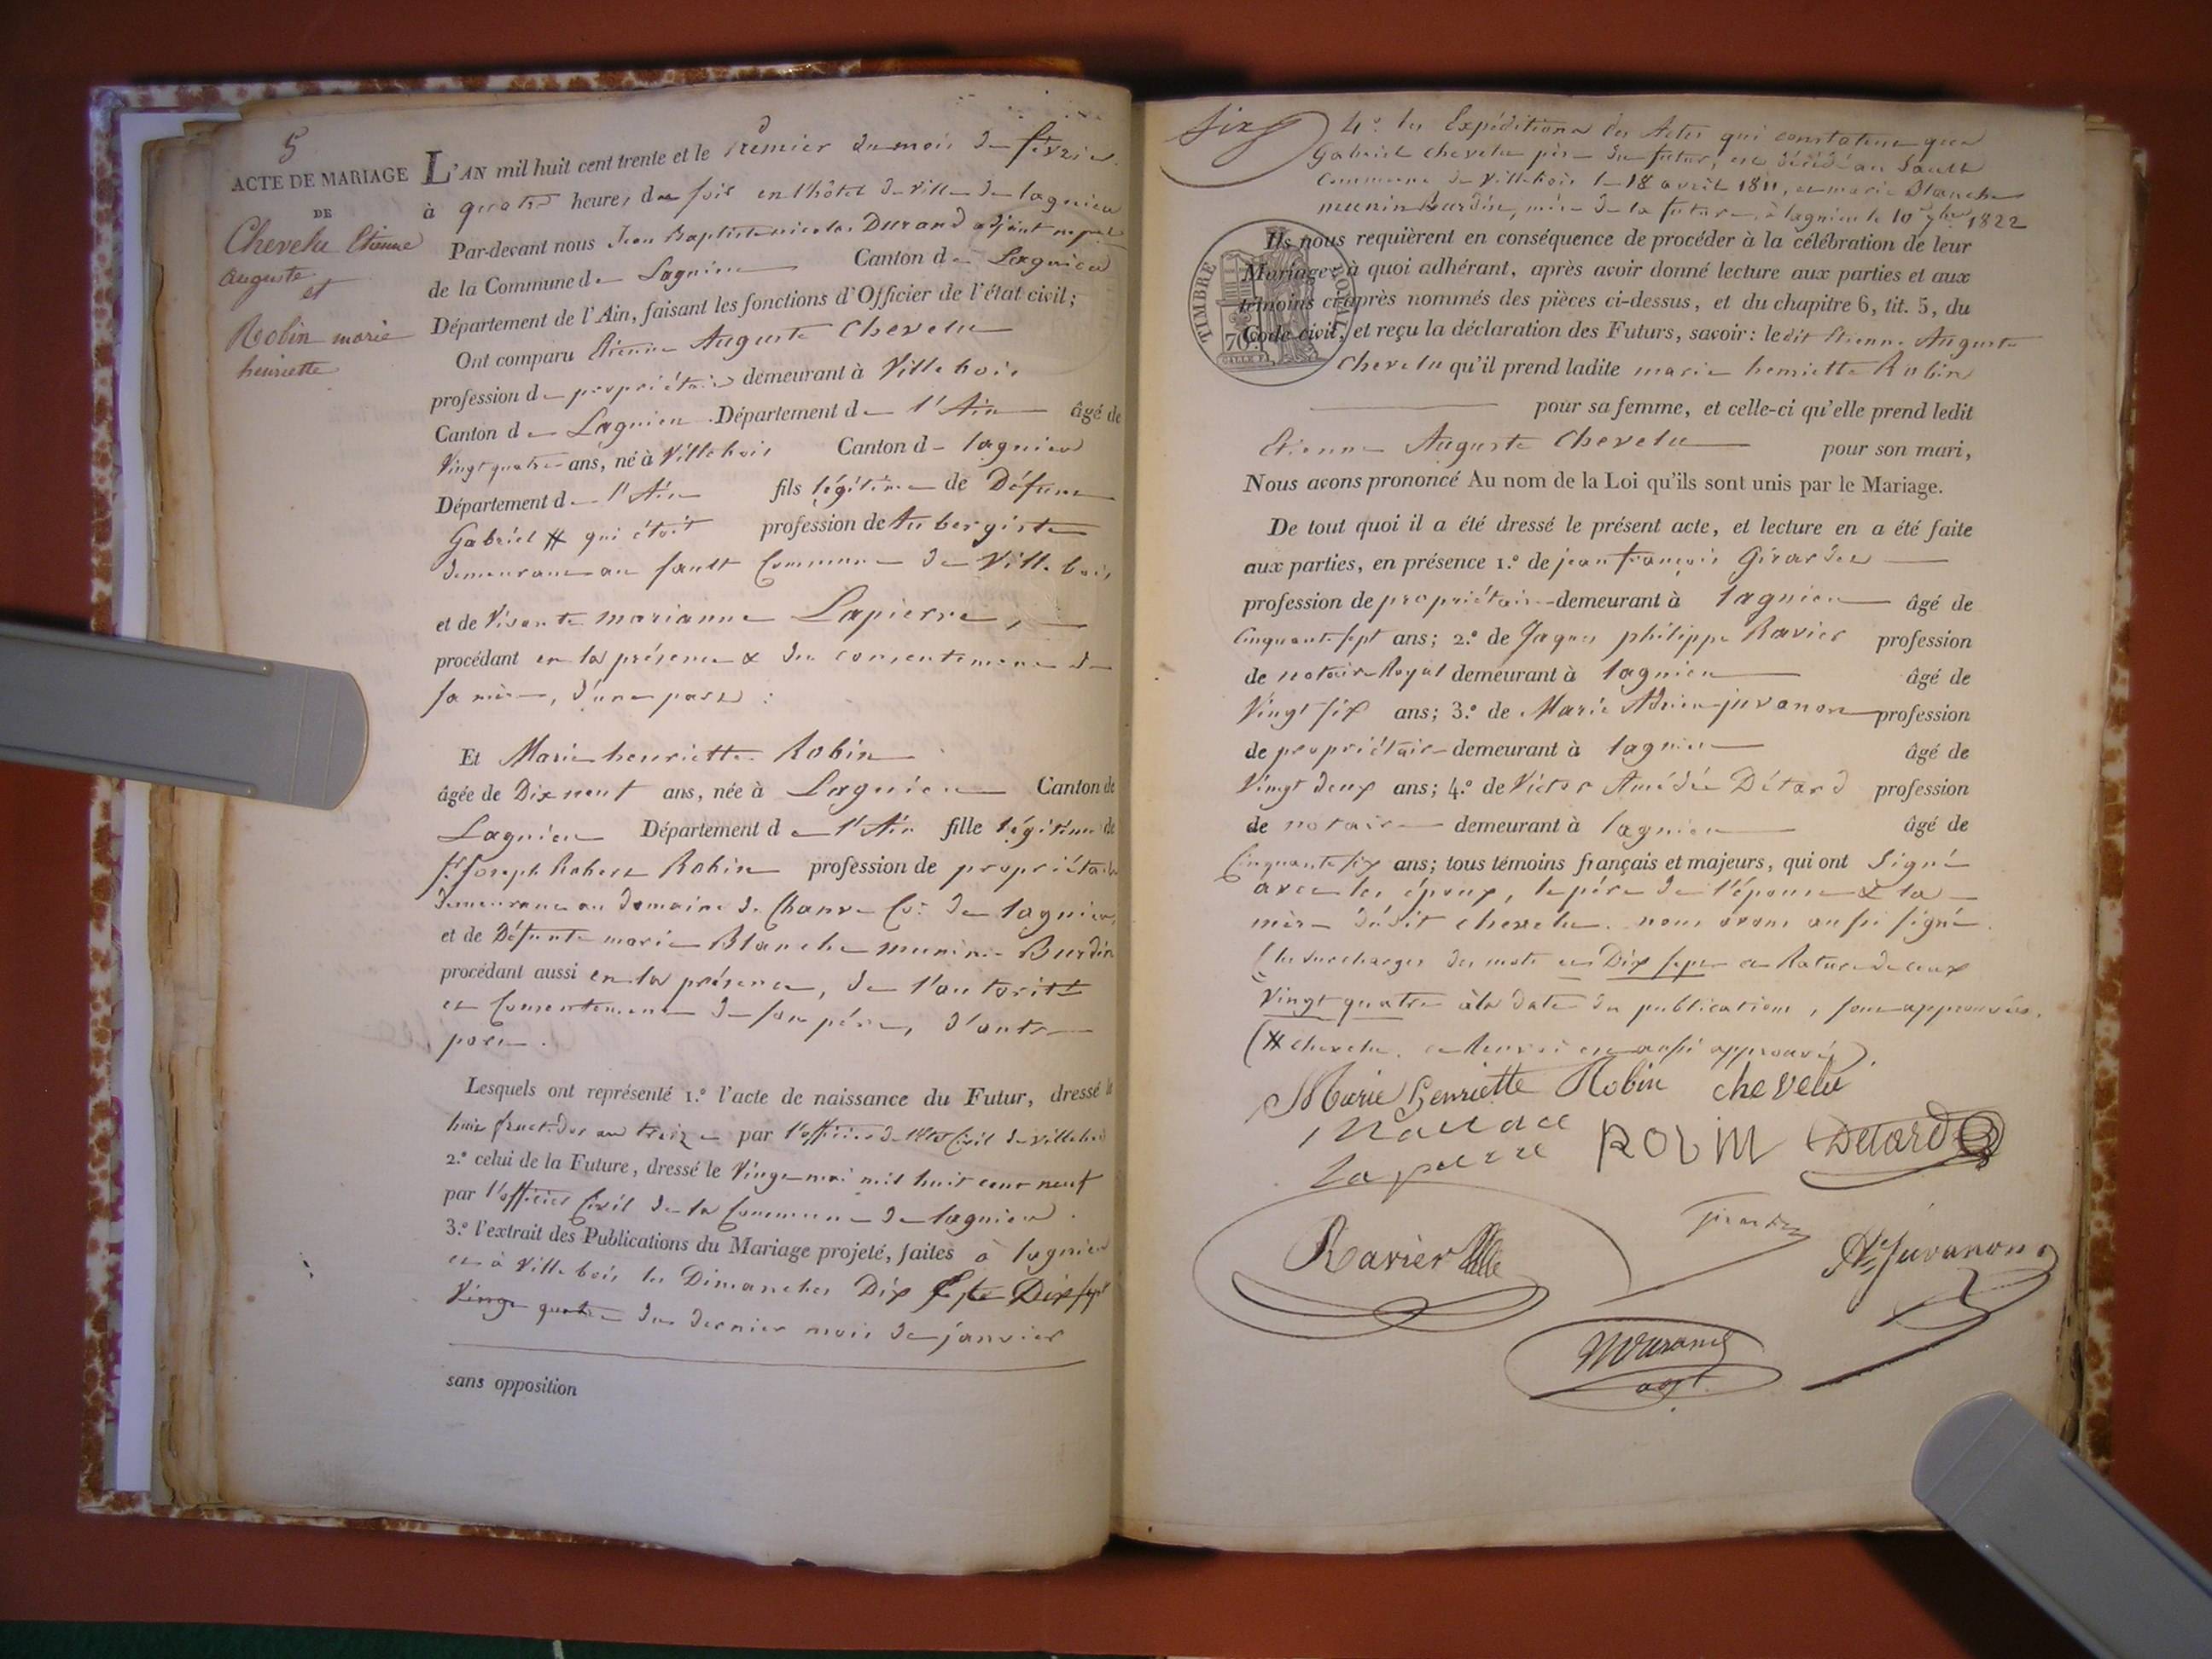 5
ACTE DE MARIAGE
DE
Chevelu Etienne
auguste
et
Robin marie
henriette
L'AN mil huit cent trente et le Premier du mois de février
à quatre heures du soir en l'hôtel de ville de lagnieu
Par-devant nous Jean Baptiste nicolas Durand adjoint
de la Commune de Lagnieu Canton de Lagnieu
Département de l'Ain, faisant les fonctions d'Officier de l'état civil;
Ont comparu Etienne Auguste Chevelu
profession de propriétaire demeurant à Villebois
Canton de Lagnieu Département de l'Ain âgé de
Vingt quatre ans, né à Villebois Canton de lagnieu
Département de l'Ain fils légitime de Défunt
Gabriel # qui étoit profession de Aubergiste
demeurant au sault Commune de Villebois
et de Vivante marianne Lapierre,
procédant en la présence & du consentement de
sa mère, d'une part :
Et Marie henriette Robin
âgée de Dix neuf ans, née à Lagnieu Canton de
Lagnieu Département de l'Ain fille légitime de
Sr. Joseph Robert Robin profession de propriétaire
demeurant au domaine de Chanve Cne de lagnieu,
et de Défunte marie Blanche munin Burdin
procédant aussi en la présence, de l'autorité
et Consentement de son père, d'autre
part.
Lesquels ont représenté 1.º l'acte de naissance du Futur, dressé le
huit fructidor an treize par l'officier de l'Etat Civil de villebois
2.º celui de la Future, dressé le Vingt mai mil huit cent neuf
par l'officier Civil de la Commune de lagnieu.
3.º l'extrait des Publications du Mariage projeté, faites à lagnieu
et à Villebois les Dimanches Dix sept Dix sept
Vingt quatre du dernier mois de janvier
sans opposition
six
4.º les Expéditions des Actes qui constatent que
Gabriel chevelu père du futur, est décédé au Sault
Commune de Villebois le 18 avril 1811, et marie Blanche
munin Burdin, mère de la future, à lagnieu le 10 1822
TIMBRE ROYAL
70
Ils nous requièrent en conséquence de procéder à la célébration de leur
Mariage; à quoi adhérant, après avoir donné lecture aux parties et aux
témoins ci-après nommés des pièces ci-dessus, et du chapitre 6, tit. 5, du
Code civil, et reçu la déclaration des Futurs, savoir: ledit Etienne Auguste
Chevelu qu'il prend ladite marie henriette Robin
pour sa femme, et celle-ci qu'elle prend ledit
Etienne Auguste Chevelu pour son mari,
Nous avons prononcé Au nom de la Loi qu'ils sont unis par le Mariage.
De tout quoi il a été dressé le présent acte, et lecture en a été faite
aux parties, en présence 1.º de jean françois Girardet
profession de propriétaire demeurant à lagnieu âgé de
Cinquante sept ans; 2.º de Jaques philippe Ravier profession
de notaire Royal demeurant à lagnieu âgé de
Vingt six ans; 3.º de Marie Adrien juvanon profession
de propriétaire demeurant à lagnieu âgé de
Vingt deux ans; 4.º de Victor Amédée Détard profession
de notaire demeurant à lagnieu âgé de
Cinquante six ans; tous témoins français et majeurs, qui ont Signé
avec les époux, le père de l'épouse & la
mère dudit chevelu. nous avons aussi signé.
(les surcharges des mots et Dix sept et Rature de ceux
Vingt quatre à la date des publications, sont approuvés.
(# chevelu. ce Renvoi est aussi approuvé).
Marie henriette Robin chevelu
lapierre RObIN Detard
Ravier Girardet
Ad. Juvanon
NDurand
adjt.